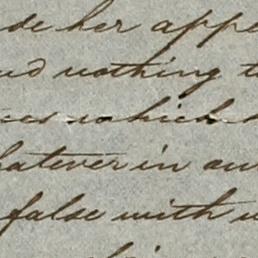 her appe
nothing t
which
hatever in an
false with